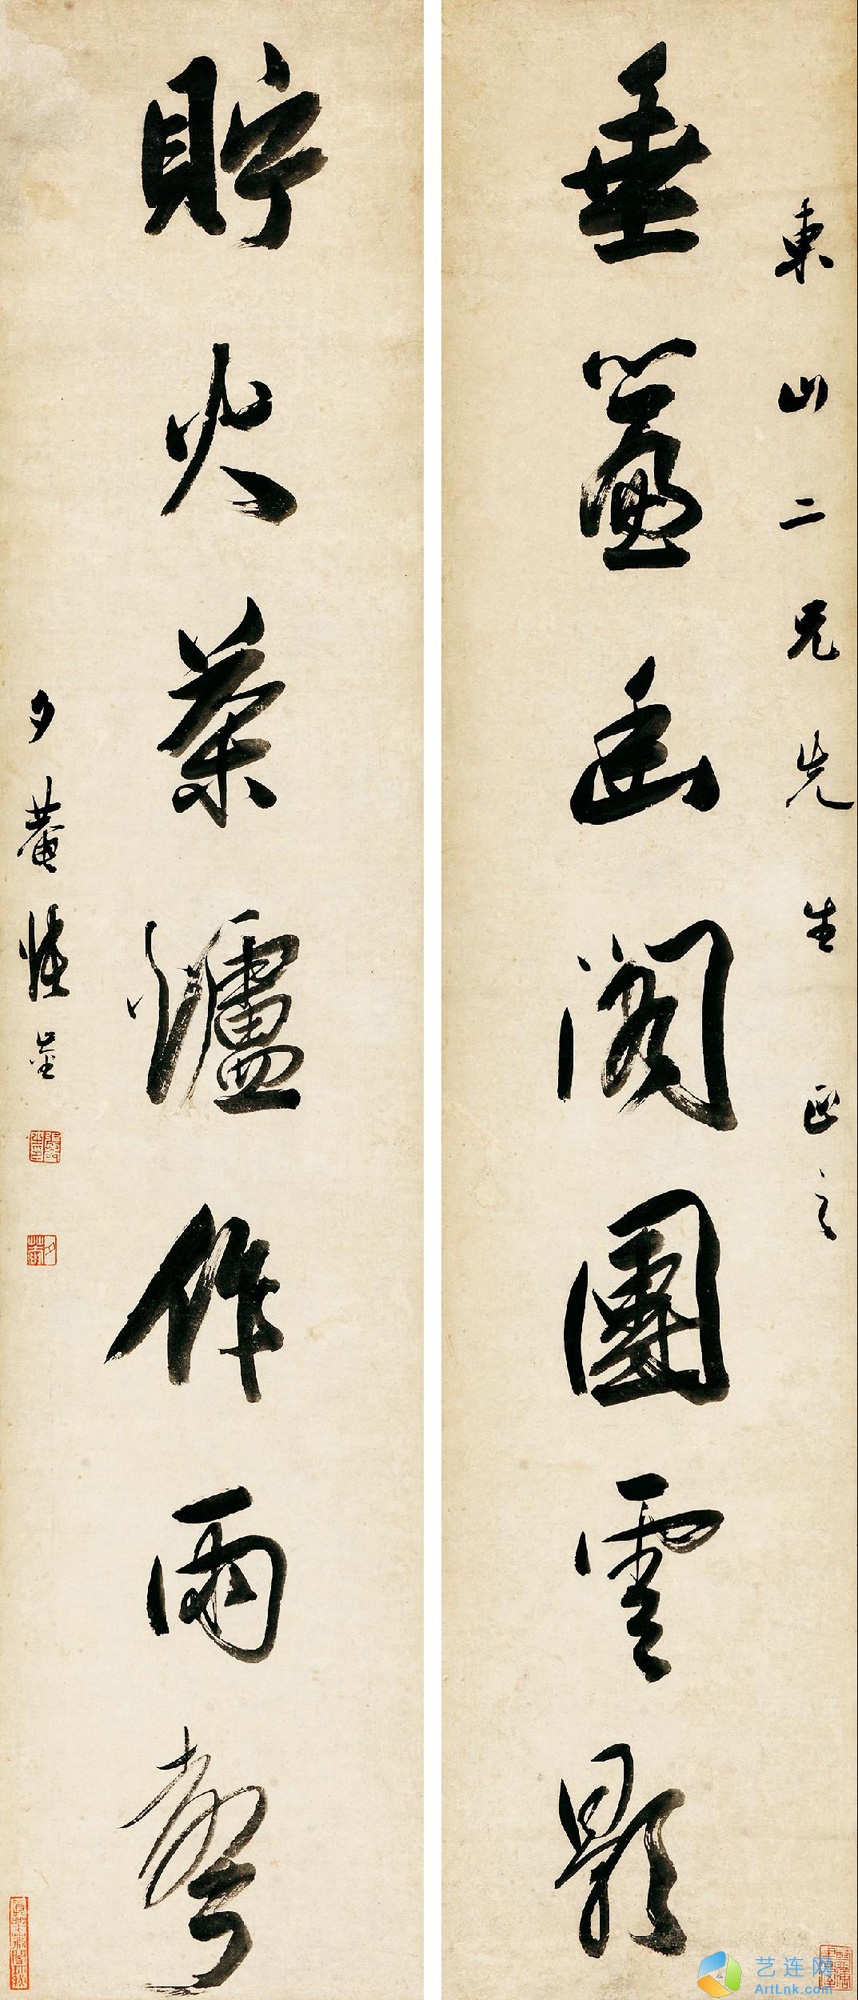 東山二兄先生正之
垂簾幽閣團雲影
貯火茶爐作雨聲
夕菴張崟
艺连网
ArtLnk.com